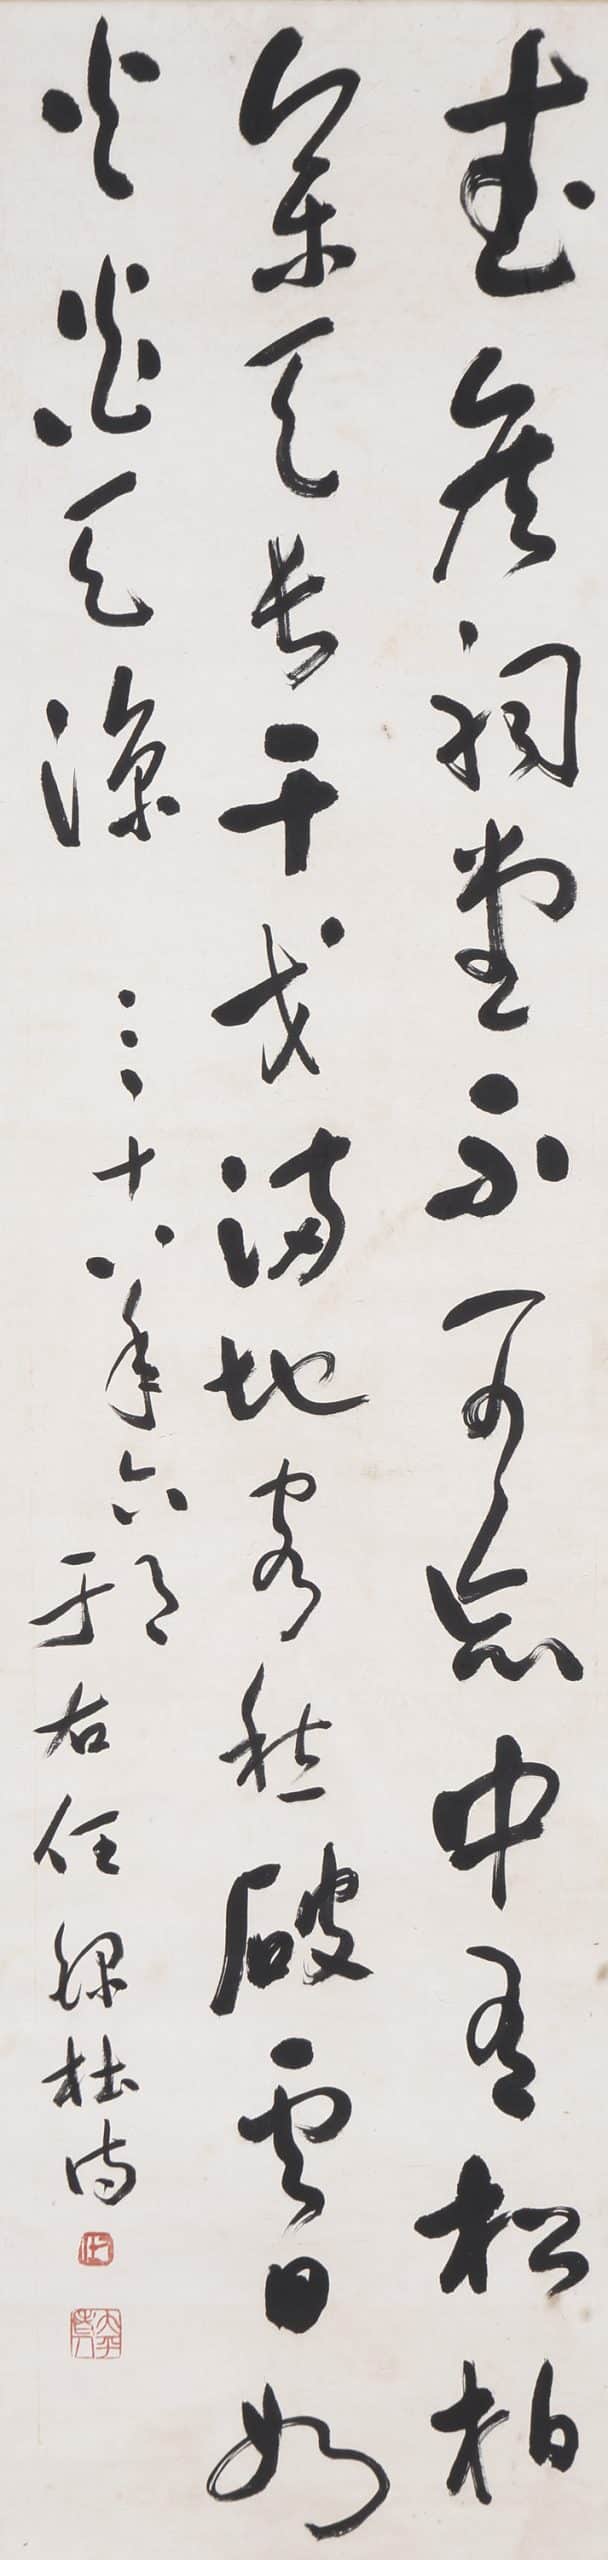 武侯祠堂不可忘中有松柏
參天長干戈滿地客愁破雲日如
火炎天涼 三十八年六月
于右任錄杜詩
太平老人